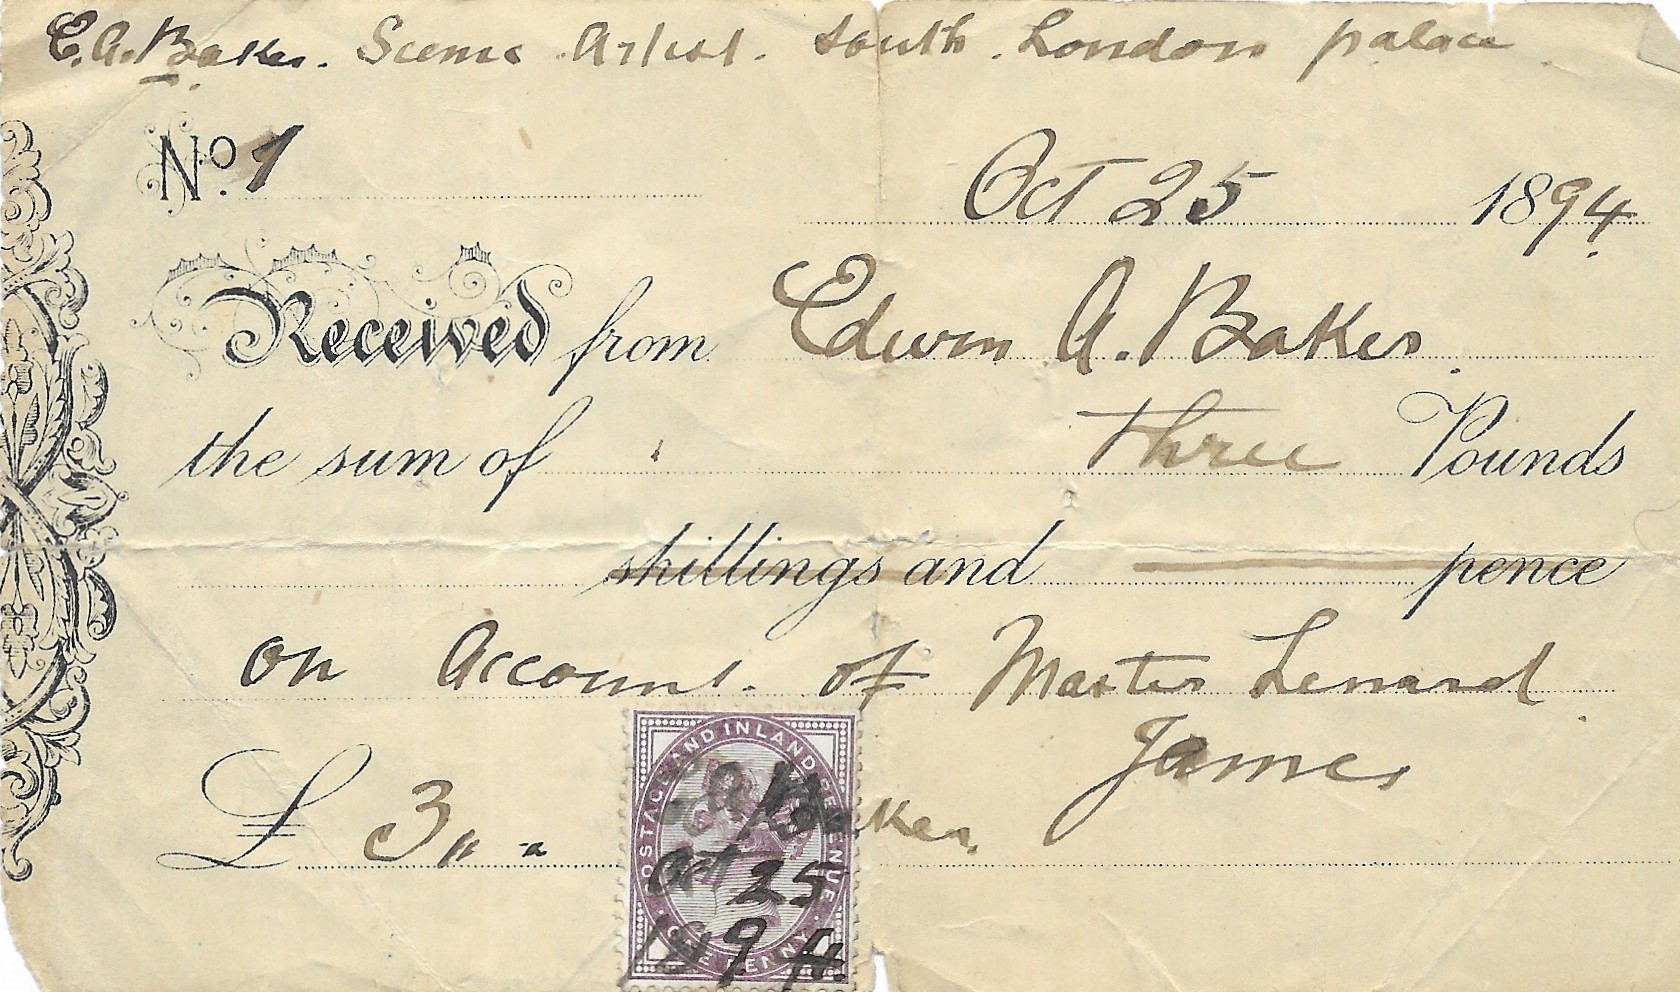 E. A. Baker. Scenic Artist. South London palace
No. 1
Oct 25 1894
Received from Edwin A. Baker
the sum of three Pounds
shillings and — pence
on Account of Master Lenard
James
£ 3 " - "
POSTAGE AND INLAND REVENUE
Baker
Oct 25
1894
ONE PENNY